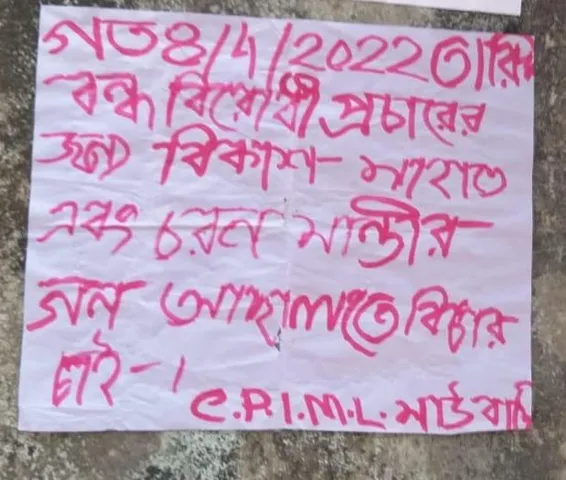 গত 8/4/2022 তারিখ
বন্ধ বিরোধী প্রচারের
জন্য বিকাশ- মাহাত
এবং চরন মান্ডীর
গন আদালতে বিচার
চাই-।
C.P.I.M.L. মাউবাদি